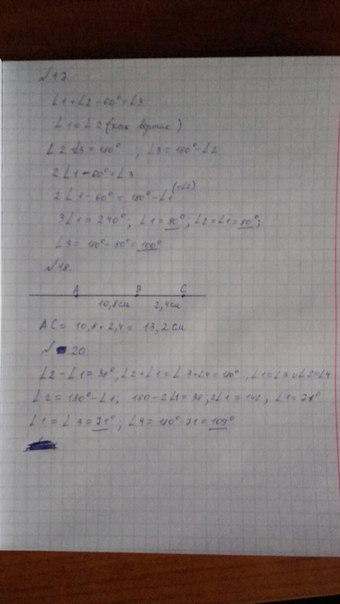 №17.
∠1+∠2-60°=∠3
∠1=∠2 (как вертик)
∠2 ∠3=180°, ∠3=180°-∠2
2∠1-60°=∠3
2∠1-60°=180°-∠1 (=∠2)
3∠1=240°, ∠1=80°, ∠2=∠1=80°;
∠3=180°-80°=100°
№18.
A B C
10,8см 2,4см
AC= 10,8+2,4= 13,2см
№ 20
∠2-∠1=38°, ∠2+∠1=∠3+∠4=180°, ∠1=∠3 и ∠2=∠4
∠2=180°-∠1; 180-2∠1=38, 2∠1=142, ∠1=71°
∠1=∠3=71°, ∠4=180°-71=109°